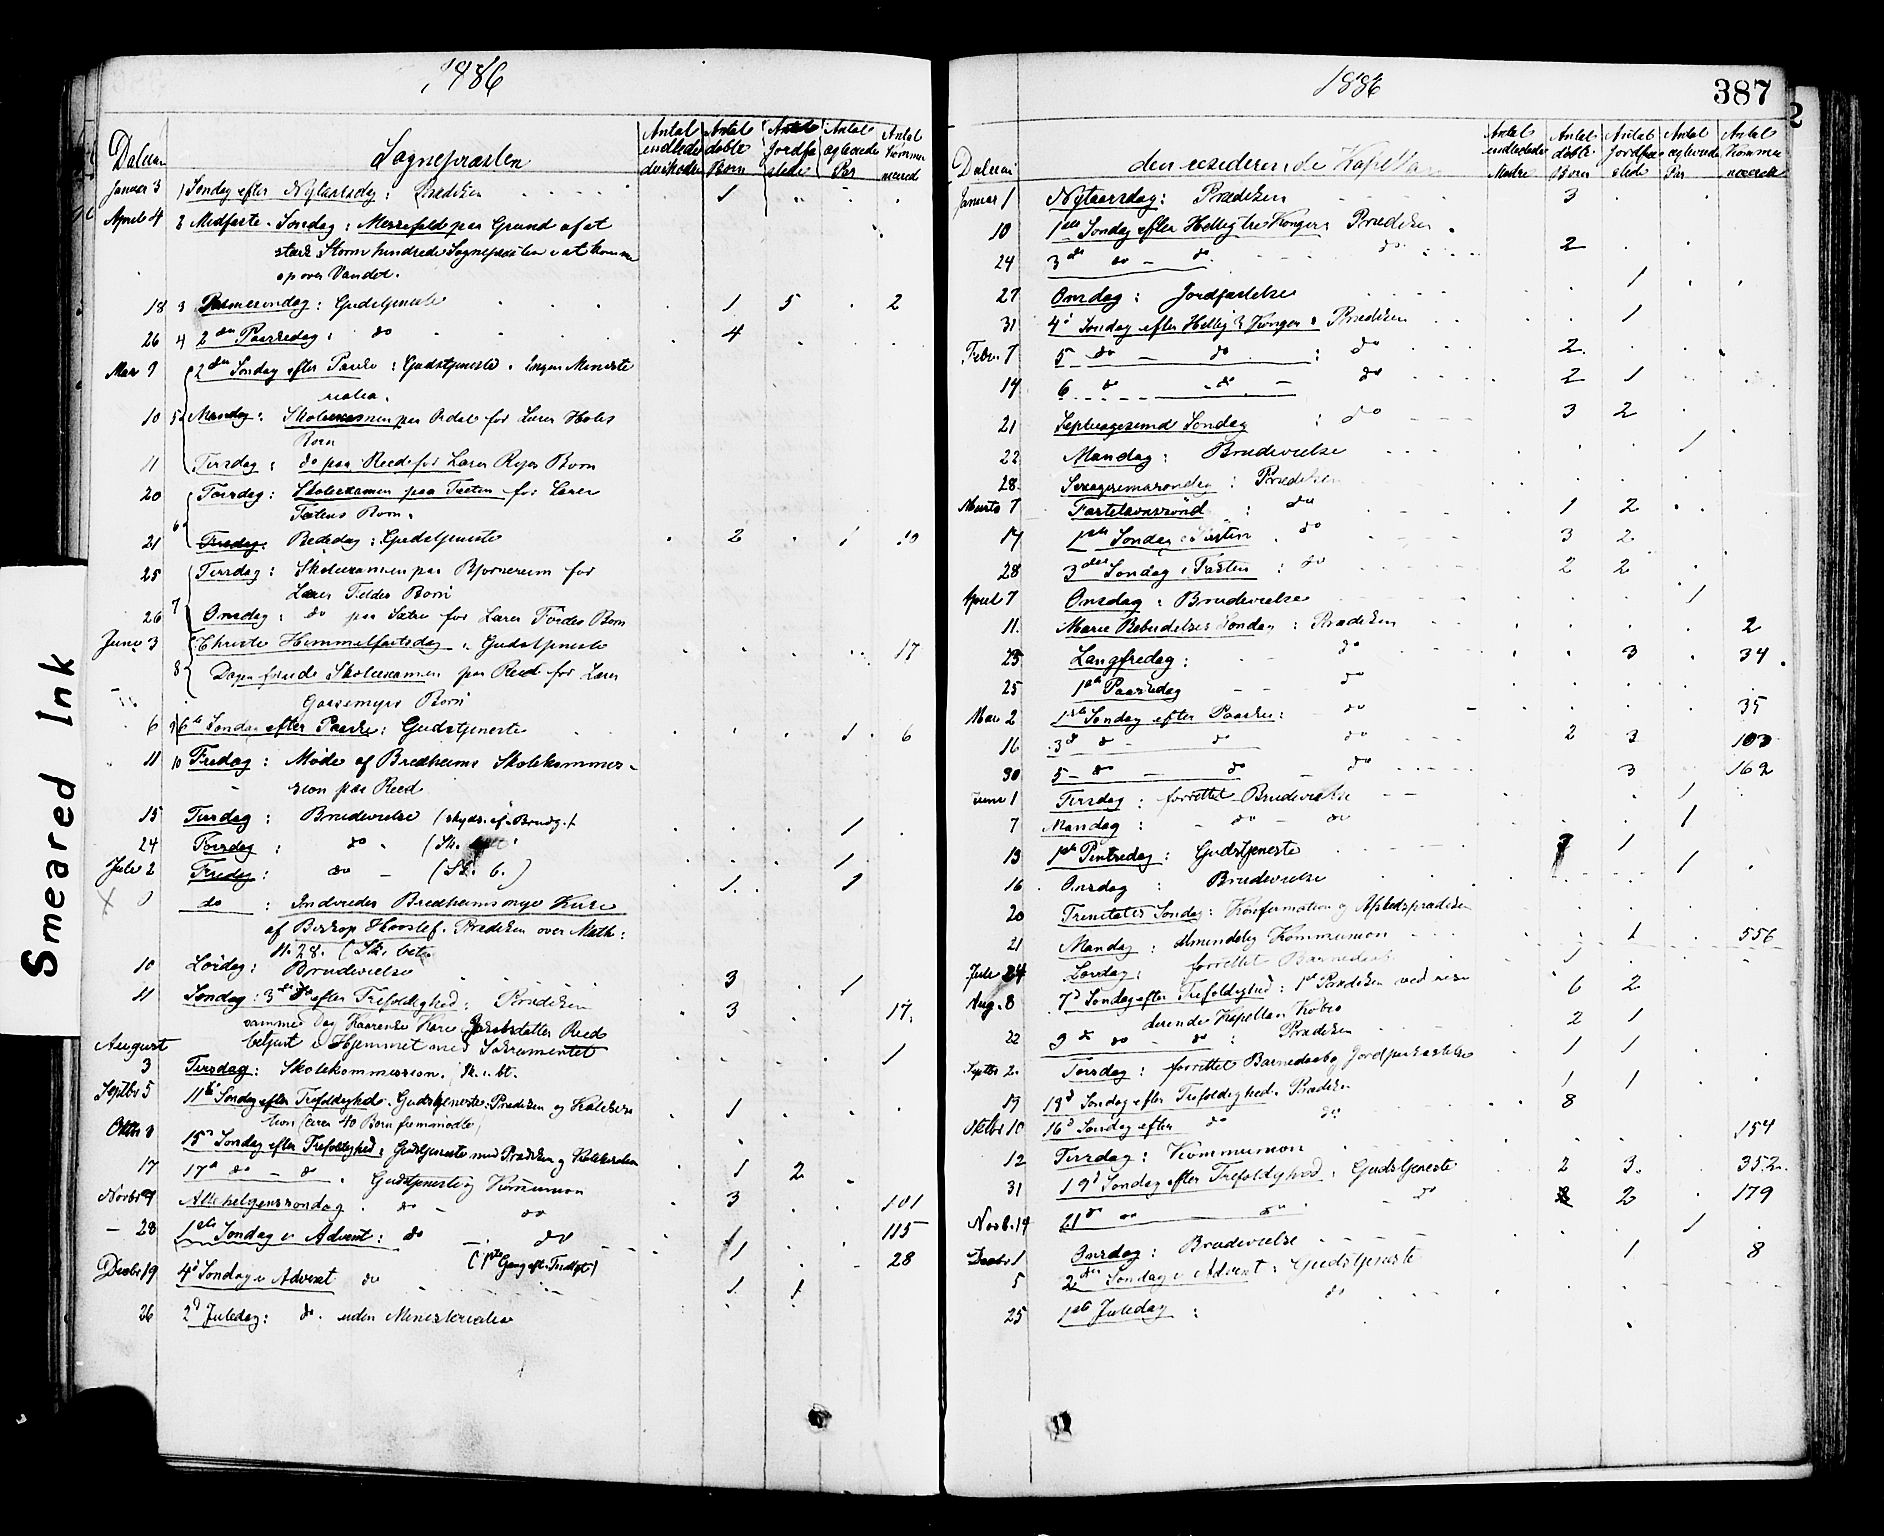 1886
Datum
Sognepræsten
Antal indledede Barselkoner
Antal døbte Børn
Antal Jordfæstede
Antal ægteviede Par
Antal Kommunicerende
Januar 3 1 Søndag efter Nytaarsdag: Prædiken 1
April 4 2 Midfaste-Søndag: Messefald paa Grund af at
stærk Storm hindrede Sognepræsten i at komme
op over Vandet.
18 3 Palmesøndag: Gudstjeneste 1 5 2
26 4 2den Paaskedag: do 4
Mai 9 2den Søndag efter Paaske: Gudstjeneste. Ingen Ministe
rialia.
10 5 Mandag: Skoleexamen paa Ordal for Lærer Holes
Børn
11 Tirsdag: do paa Reed for Lærer Børn
20 Torsdag: Skoleexamen paa for Lærer
Børn.
21 6 Fredag: Bededag: Gudstjeneste 2 1 10
25 Tirsdag: Skoleexamen paa for
Lærer Børn
26 7 Onsdag: do paa Sætre for Lærer Børn
Juni 3 Christi Himmelfartsdag: Gudstjeneste 17
8 Dagen forud Skoleexamen paa Reed for Lærer
Gaasemyrs Børn
6 9 6te Søndag efter Paaske: Gudstjeneste 1 6
11 10 Fredag: Møde af Bredheims Skolekommis-
sion paa Reed
15 Tirsdag: Brudevielse (skyds. af Brudg.) 1
24 Torsdag: do (Sk. 1
Juli 2 Fredag: do - (Sk. b.) 1 1
9 do: Indviedes Bredheims nye Kirke
af Biskop Hvoslef. Prædiken over Math:
11.28. (Sk. bet.
10 Lørdag: Brudevielse 3 1
11 Søndag: 3die do efter Trefoldighed: Prædiken 3 17.
samme Dag Kari Jacobsdatter Reed
betjent i Hjemmet med Sakramentet 1
August
3 Tirsdag: Skolekommission. Sk. bt.
Septbr 5 11te Søndag efter Trefoldighed. Gudstjeneste: Prædiken og Katekisa 1
tion (circa 40 Børn fremmødte)
Oktbr 15d Søndag efter Trefoldighed: Gudstjeneste med Prædiken og Katekisation
17 17d do - do. Gudstjeneste og Kommunion 1 2
Novbr Allehelgenssøndag. do - do 3 101
- 28 1ste Søndag i Advent: do - do 1 115
Decbr 19 4d Søndag i Advent do (1ste Gang eft. Indlagt) 1 28
26 2d Juledag: do. uden Ministerialia 1 1
1886
387
2
Datum
den residerende Kapellan
Antal indledede Mødre
Antal døbte Børn
Antal Jordfæstede
Antal ægteviede Par
Antal Kommunicerende
Januar 1 Nytaarsdag: Prædiken 3
10 1ste Søndag efter Hellig tre Konger: Prædiken
24 3d do - do do 2
27 Onsdag: Jordfæstelse 1
31 4d Søndag efter Hellig 3 Konger: Prædiken 1
Febr. 7 5 do - do: do 2
14 6 do - do - do 2 1
21 Septuagesima Søndag: do 3 2
22 Mandag: Brudevielse 1
28 Sexagesimasøndag: Prædiken
Marts 7 Fastelavnssønd: do 1 2
14 1ste Søndag i Fasten. do 3 2
28 3die Søndag i Fasten: do 2 2
April 7 Onsdag: Brudevielse 1
11. Marie Bebudelses Søndag: Prædiken 2
23 Langfredag: do 3 34
25 1ste Paaskedag - - do
Mai 2 1ste Søndag efter Paaske: do 35
16 3d do - do do 2 3 103
30 5 - do - do - do 3 162
Juni 1 Tirsdag: forrettet Brudevielse 1
7 Mandag: - do - do 1
13 1ste Pintsedag: Gudstjeneste 1
16 Onsdag: Brudevielse 1
20 Trinitatis Søndag: Konfirmation og Afskedsprædiken
21 Mandag: Almindelig Kommunion 1 556
Juli 24 Lørdag: forrettet Barnedaab 1
Aug. 8 7d Søndag efter Trefoldighed: 1st Prædiken ved resi 6 2
derende Kapellan
22 9d do - do: Prædiken 2 1
Septbr 2. Torsdag: forrettet Barnedaab og Jordpaakastelse 1 1
19 13d Søndag efter Trefoldighed. Prædiken 1 1
Oktbr 10 16d Søndag efter do do 8
12 Tirsdag: Kommunion 154
31 19d Søndag efter Trefoldighed: Gudstjeneste 2 3. 352.
Novb. 14 21d do do - do 2 179
Decbr 1 Onsdag: Brudevielse 1
5 2den Søndag i Advent: Gudstjeneste 1 8
25 1ste Juledag: do
Smeared Ink